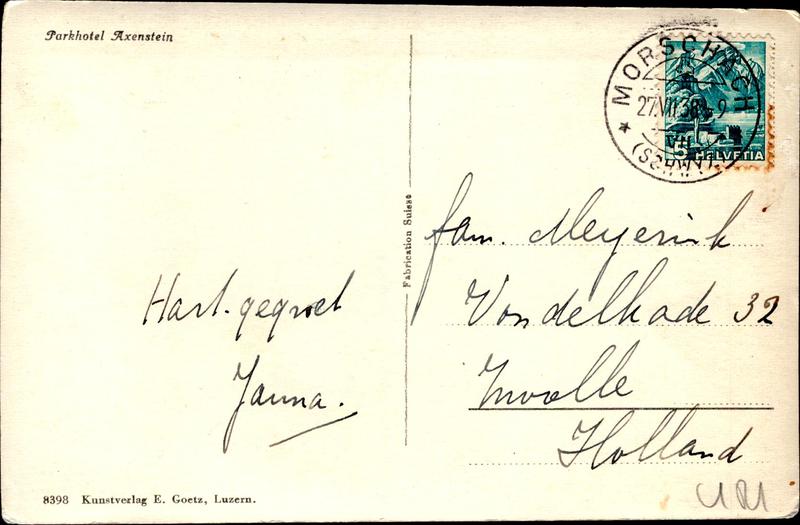 Parkhotel Axenstein
MORSCHACH
27.VII.38 9
(SCHWYZ)
5 HELVETIA
Fabrication Suisse
fam. Meyerink
Vondelkade 32
Zwolle
Holland
Hart. gegroet
Janna.
8398 Kunstverlag E. Goetz, Luzern.